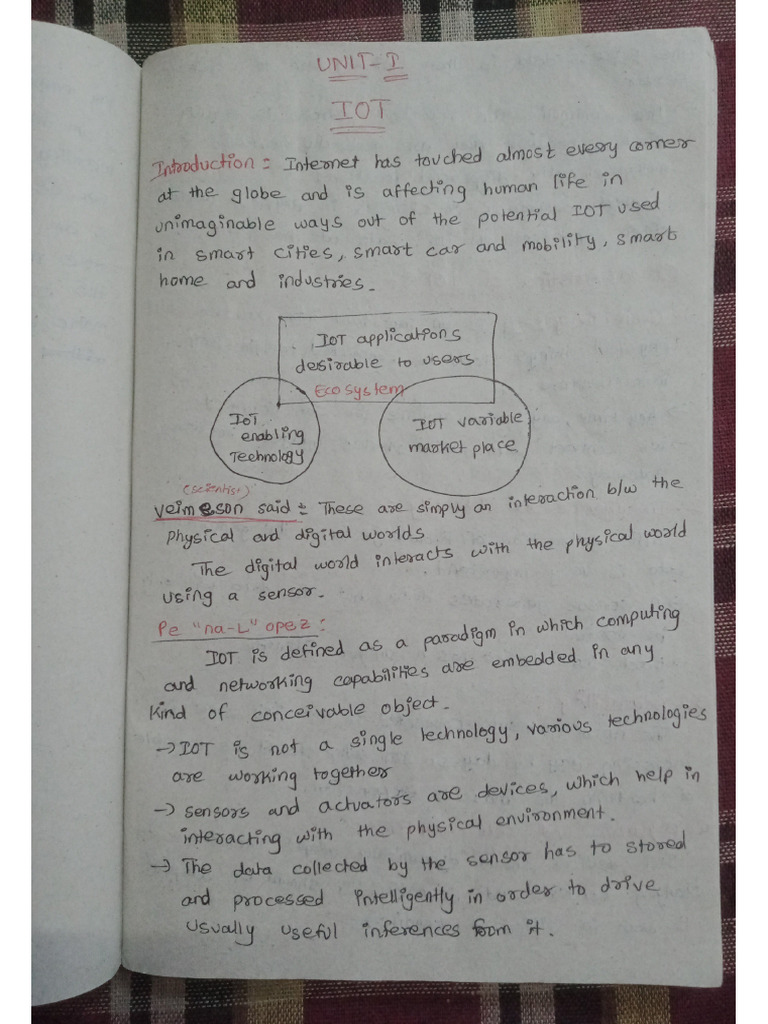 UNIT-I
IOT
Introduction: Internet has touched almost every corner
at the globe and is affecting human life in
unimaginable ways out of the potential IOT used
in smart cities, smart car and mobility, smart
home and industries.
IOT applications
desirable to users
Ecosystem
IOT
enabling
Technology
IOT variable
market place
(scientist)
veimerson said:- These are simply an interaction b/w the
physical and digital worlds
The digital world interacts with the physical world
using a sensor.
Pe "na-L" opez:
IOT is defined as a paradigm in which computing
and networking capabilities are embedded in any
kind of conceivable object.
→ IOT is not a single technology, various technologies
are working together
→ sensors and actuators are devices, which help in
interacting with the physical environment.
→ The data collected by the sensor has to stored
and processed intelligently in order to drive
usually useful inferences from it.